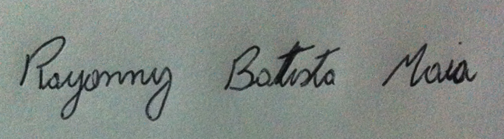 Rayanny Batista Maia